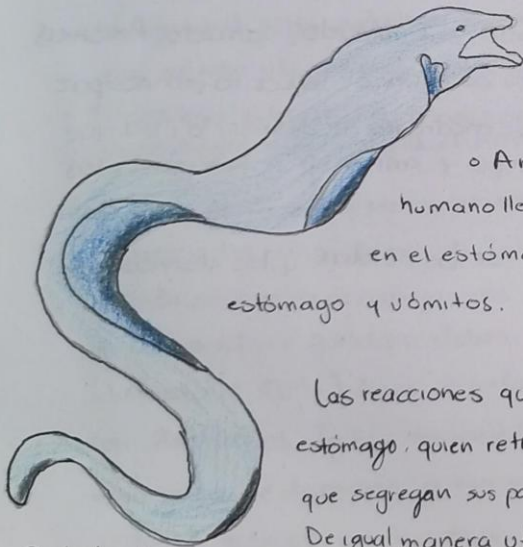 o An
humano lle
en el estóma
estómago y vómitos.
Las reacciones qu
estómago, quien reti
que segregan sus pa
De igual manera us